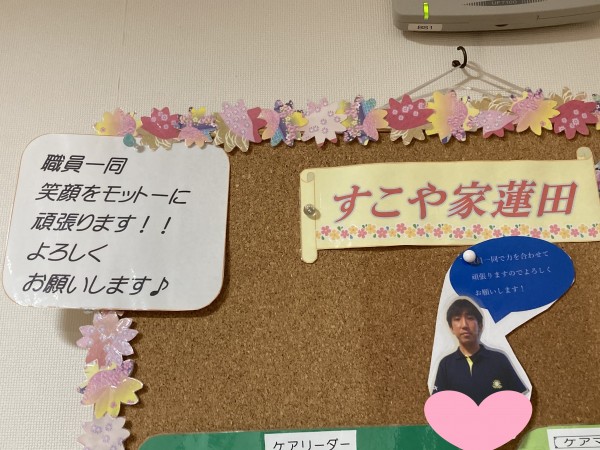 職員一同
笑顔をモットーに
頑張ります！！
よろしく
お願いします♪
すこや家蓮田
員一同で力を合わせて
頑張りますのでよろしく
お願いします！
ケアリーダー
ケアマ